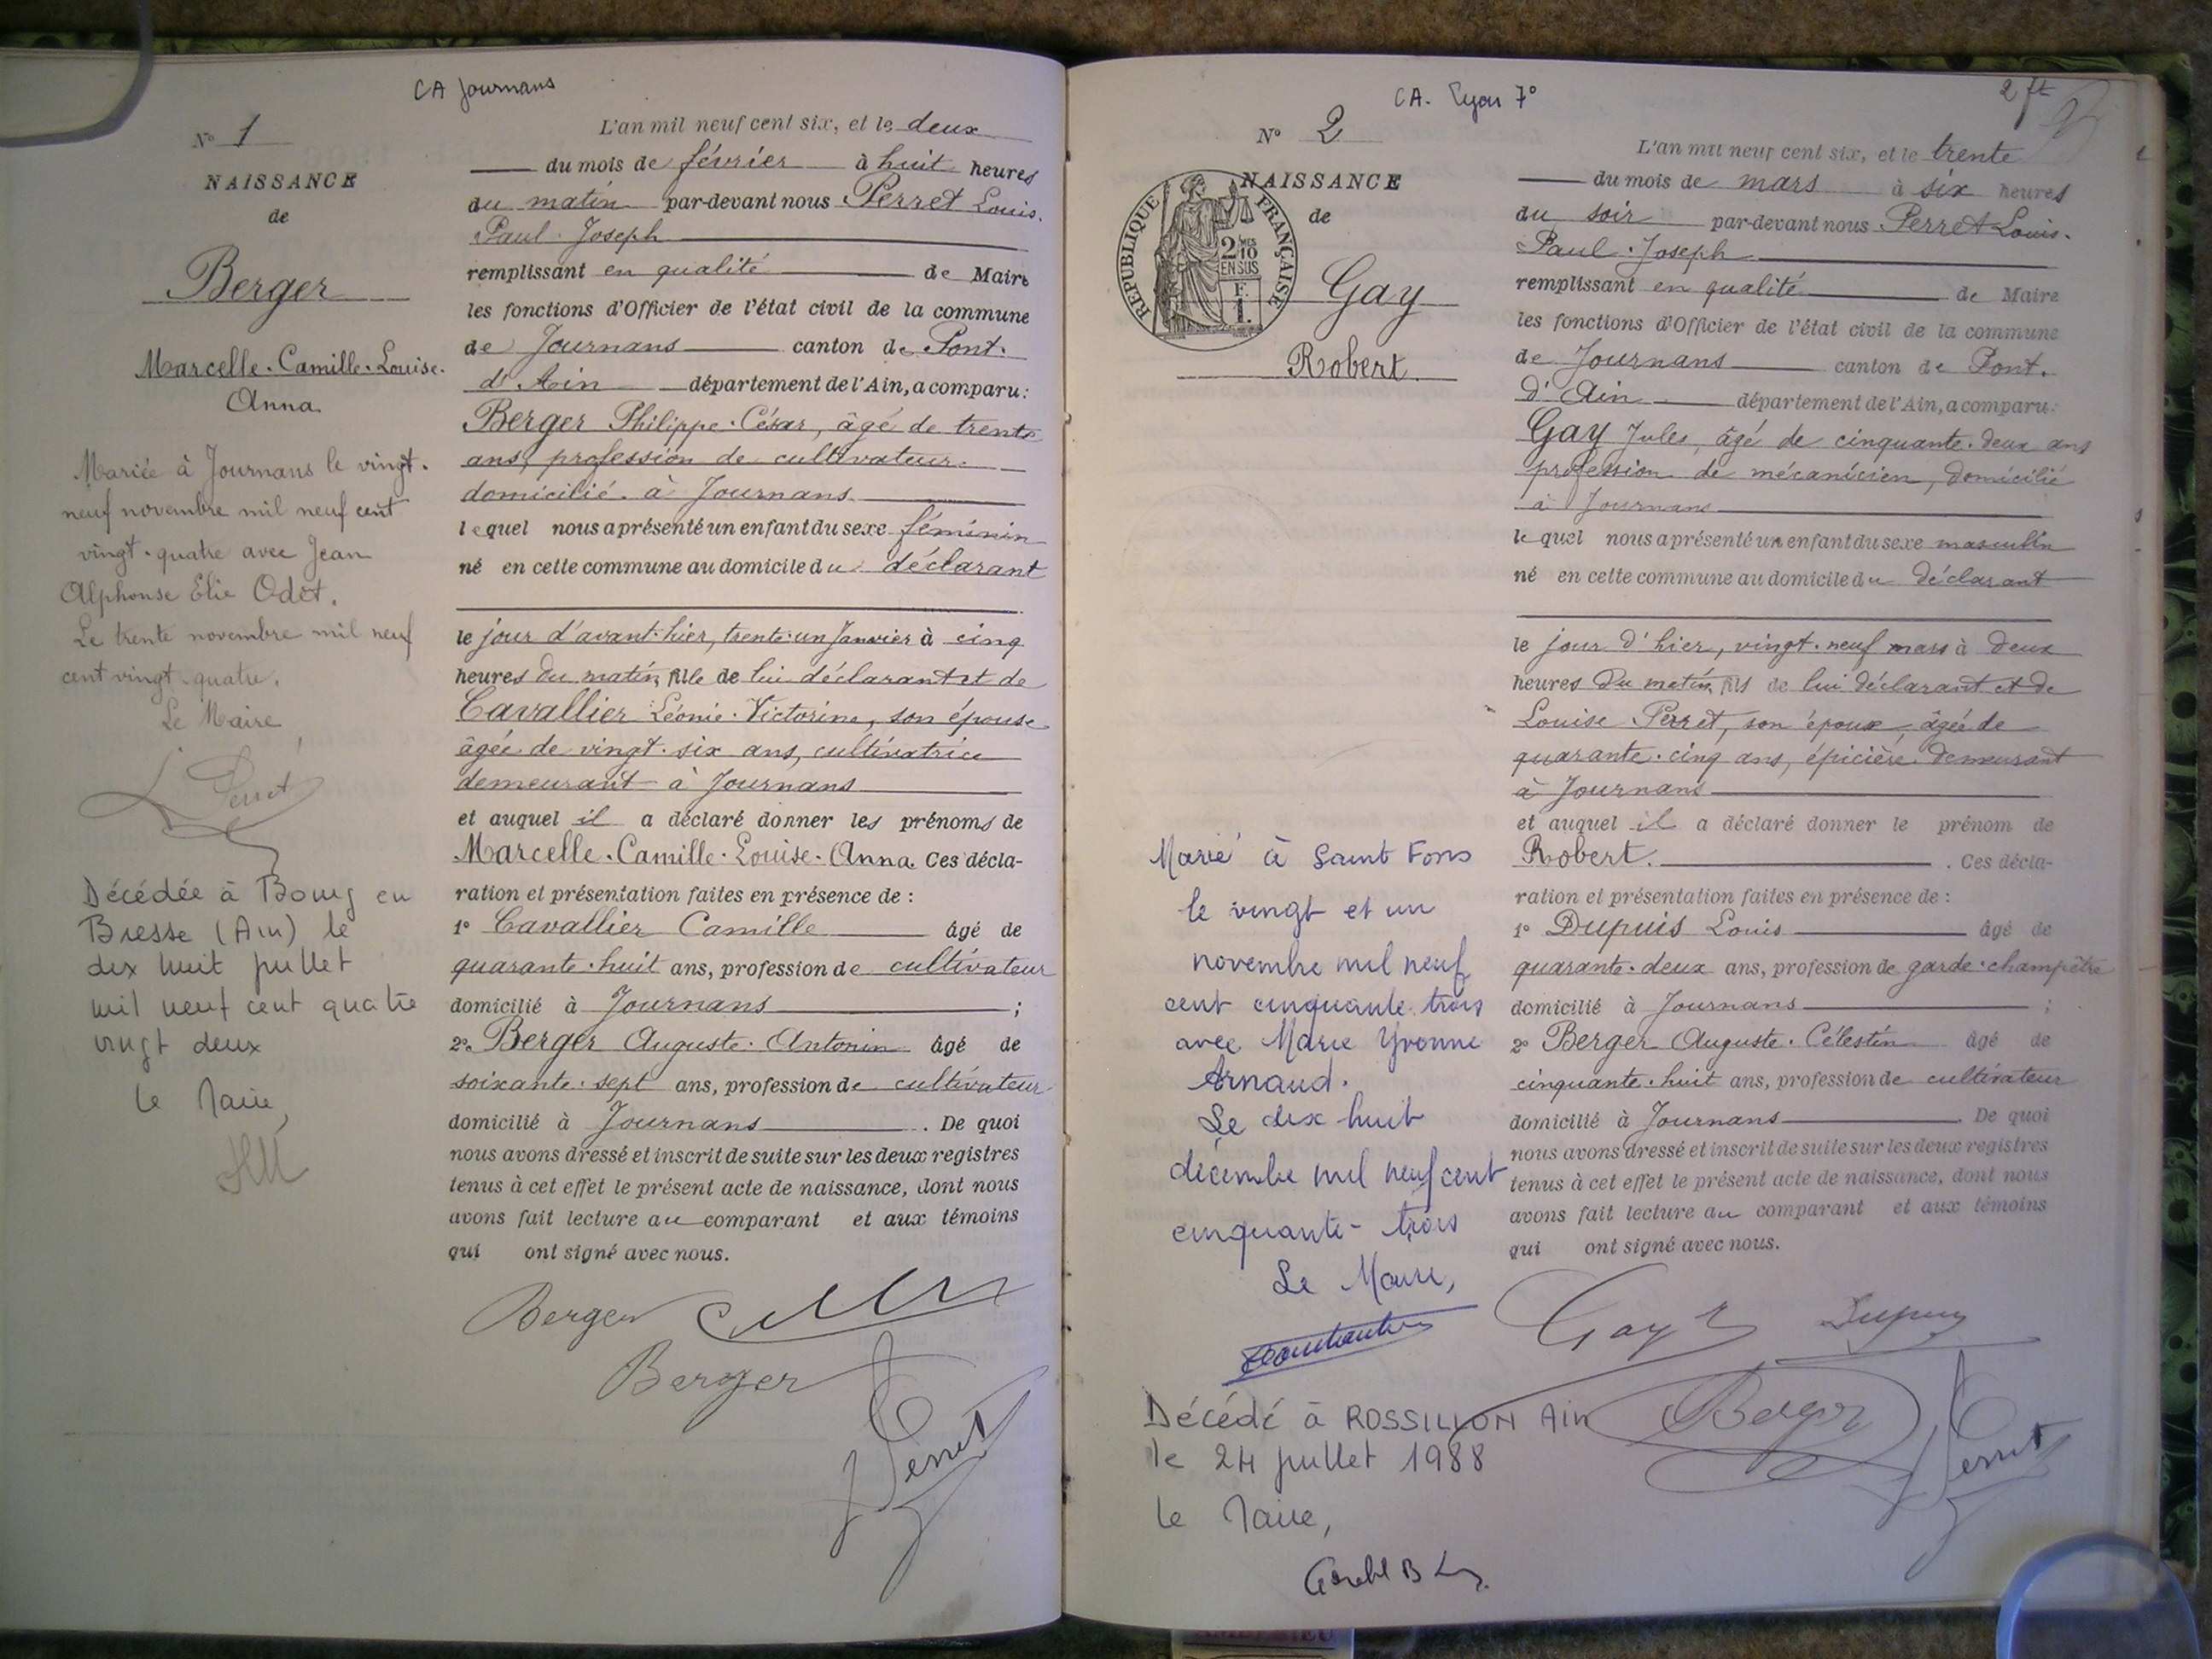 CA Journans
N° 1
NAISSANCE
de
Berger
Marcelle. Camille. Louise.
Anna
Mariée à Journans le vingt.
neuf novembre mil neuf cent
vingt. quatre avec Jean
Alphonse Elie Odet.
Le trente novembre mil neuf
cent vingt. quatre.
Le Maire
Perret
Décédée à Bourg en
Bresse (Ain) le
dix huit juillet
mil neuf cent quatre
vingt deux
Le Maire,
L'an mil neuf cent six, et le deux
du mois de février à huit heures
du matin par-devant nous Perret Louis.
Paul. Joseph
remplissant en qualité de Maire
les fonctions d'Officier de l'état civil de la commune
de Journans canton de Pont.
d'Ain département de l'Ain, a comparu:
Berger Philippe. César, âgé de trente
ans, profession de cultivateur.
domicilié à Journans
lequel nous a présenté un enfant du sexe féminin
né en cette commune au domicile du déclarant
le jour d'avant-hier, trente-un Janvier à cinq
heures du matin, fille de lui déclarant et de
Cavallier Léonie. Victorine, son épouse
âgée de vingt. six ans, cultivatrice
demeurant à Journans
et auquel il a déclaré donner les prénoms de
Marcelle. Camille. Louise. Anna. Ces décla-
ration et présentation faites en présence de :
1° Cavallier Camille âgé de
quarante. huit ans, profession de cultivateur
domicilié à Journans ;
2° Berger Auguste. Antonin âgé de
soixante. sept ans, profession de cultivateur
domicilié à Journans . De quoi
nous avons dressé et inscrit de suite sur les deux registres
tenus à cet effet le présent acte de naissance, dont nous
avons fait lecture au comparant et aux témoins
qui ont signé avec nous.
Berger
Berger
Perret
CA. Lyon 7°
N° 2
NAISSANCE
de
RÉPUBLIQUE FRANÇAISE
2 MES
10
EN SUS
F.
1.
Gay
Robert
Marié à Saint Fons
le vingt et un
novembre mil neuf
cent cinquante trois
avec Marie Yvonne
Arnaud.
Le dix huit
décembre mil neuf cent
cinquante-trois
Le Maire,
Décédé à ROSSILLON Ain
le 24 juillet 1988
le Maire,
2 ft
L'an mil neuf cent six, et le trente
du mois de mars à six heures
du soir par-devant nous Perret Louis.
Paul. Joseph
remplissant en qualité de Maire
les fonctions d'Officier de l'état civil de la commune
de Journans canton de Pont.
d'Ain département de l'Ain, a comparu:
Gay Jules, âgé de cinquante. deux ans
profession de mécanicien, domicilié
à Journans
lequel nous a présenté un enfant du sexe masculin
né en cette commune au domicile du déclarant
le jour d'hier, vingt. neuf mars à deux
heures du matin, fils de lui déclarant et de
Louise Perret, son épouse, âgée de
quarante. cinq ans, épicière demeurant
à Journans
et auquel il a déclaré donner le prénom de
Robert. . Ces décla-
ration et présentation faites en présence de :
1° Dupuis Louis âgé de
quarante. deux ans, profession de garde. champêtre
domicilié à Journans ;
2° Berger Auguste. Célestin âgé de
cinquante. huit ans, profession de cultivateur
domicilié à Journans . De quoi
nous avons dressé et inscrit de suite sur les deux registres
tenus à cet effet le présent acte de naissance, dont nous
avons fait lecture au comparant et aux témoins
qui ont signé avec nous.
Gay
Dupuis
Berger
Perret